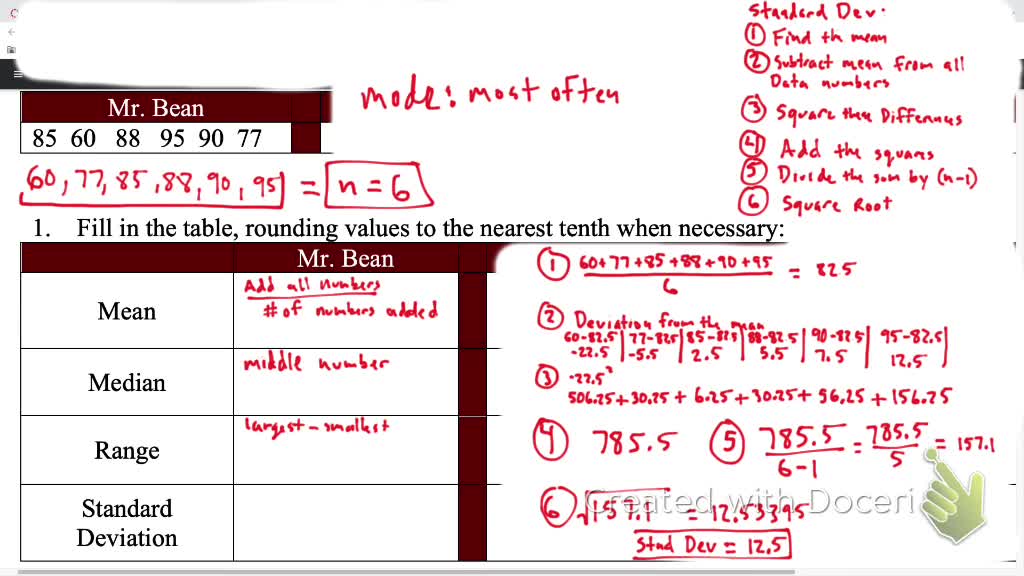 Standard Dev.
① Find th mean
② Subtract mean from all
Data numbers
③ Square then Differnus
④ Add the squares
⑤ Divide the sum by (n-1)
⑥ Square Root
mode: most often
Mr. Bean
85 60 88 95 90 77
60, 77, 85, 88, 90, 95 = n = 6
1. Fill in the table, rounding values to the nearest tenth when necessary:
Mr. Bean
Mean
Add all numbers
# of numbers added
Median
middle number
Range
largest - smallest
Standard
Deviation
① 60+77+85+88+90+95
6
= 82.5
② Deviation from the mean
60-82.5 | 77-82.5 | 85-82.5 | 88-82.5 | 90-82.5 | 95-82.5 |
-22.5 | -5.5 | 2.5 | 5.5 | 7.5 | 12.5 |
③ -22.5²
506.25 + 30.25 + 6.25 + 30.25 + 56.25 + 156.25
④ 785.5 ⑤ 785.5 / 6-1 = 785.5 / 5 = 157.1
⑥ √157.1 = 12.53395
Stnd Dev = 12.5
Created with Doceri